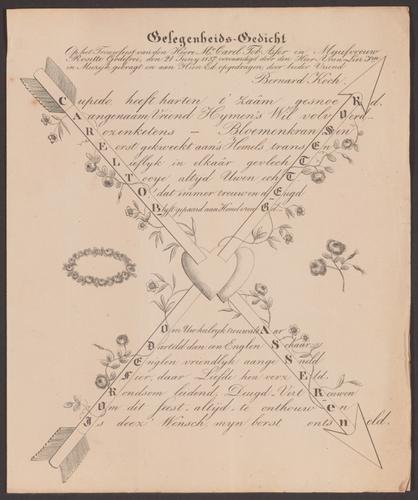 Gelegenheids-Gedicht
Op het Trouwfeest van den Heere Mr. Carel Tob. Asser en Mejufvrouw
Rosette Godefroi, den 21 Juny 1837 vervaardigd door den Heer
in Muzijk gebragt en aan Hun Ed. opgedragen, door hieder Vriend
Bernard Koch.
Cupido heeft harten t' zaâm gesnoerd.
Aangenaam Vriend Hymen's Wil volvoerd
Rozenketens — Bloemenkranssen
Eerst gekweekt aan's Hemels transsen
Lieflyk in elkaâr gevlochten
Tooije altyd Uwen echt
O! dat immer trouw en deugd
Blyft gepaard aan Hemelvreugd.
Om Uw huwlyk trouw altaar
Darteld dan een Englen Schaar
Englen vriendlyk aangesneld
Fier, daar Liefde hen verzeld.
Rondsom leidend, Deugd Vertrouwen
Om dit feest, altyd, te onthouwen
Is deez' Wensch, myn borst ontsneld.